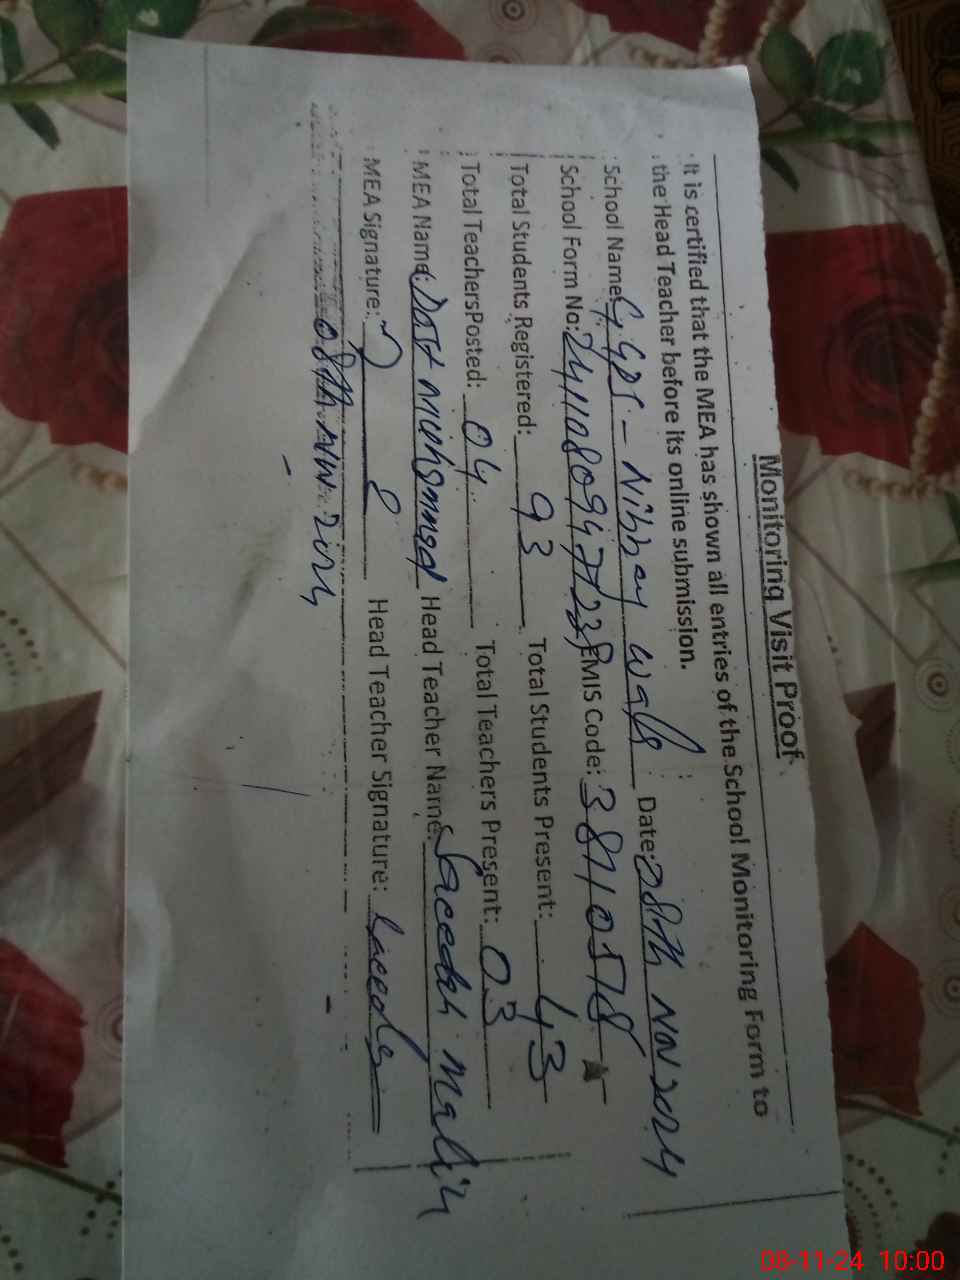 Monitoring Visit Proof
It is certified that the MEA has shown all entries of the School Monitoring Form to
the Head Teacher before its online submission.
School Name: GGPS - Nihhay wala Date: 08th Nov 2024
School Form No: EMIS Code:
Total Students Registered: 93 Total Students Present: 43
Total Teachers Posted: 04 Total Teachers Present: 03
MEA Name: Head Teacher Name: Saeedah
MEA Signature: Head Teacher Signature:
08th Nov 2024
08-11-24 10:00